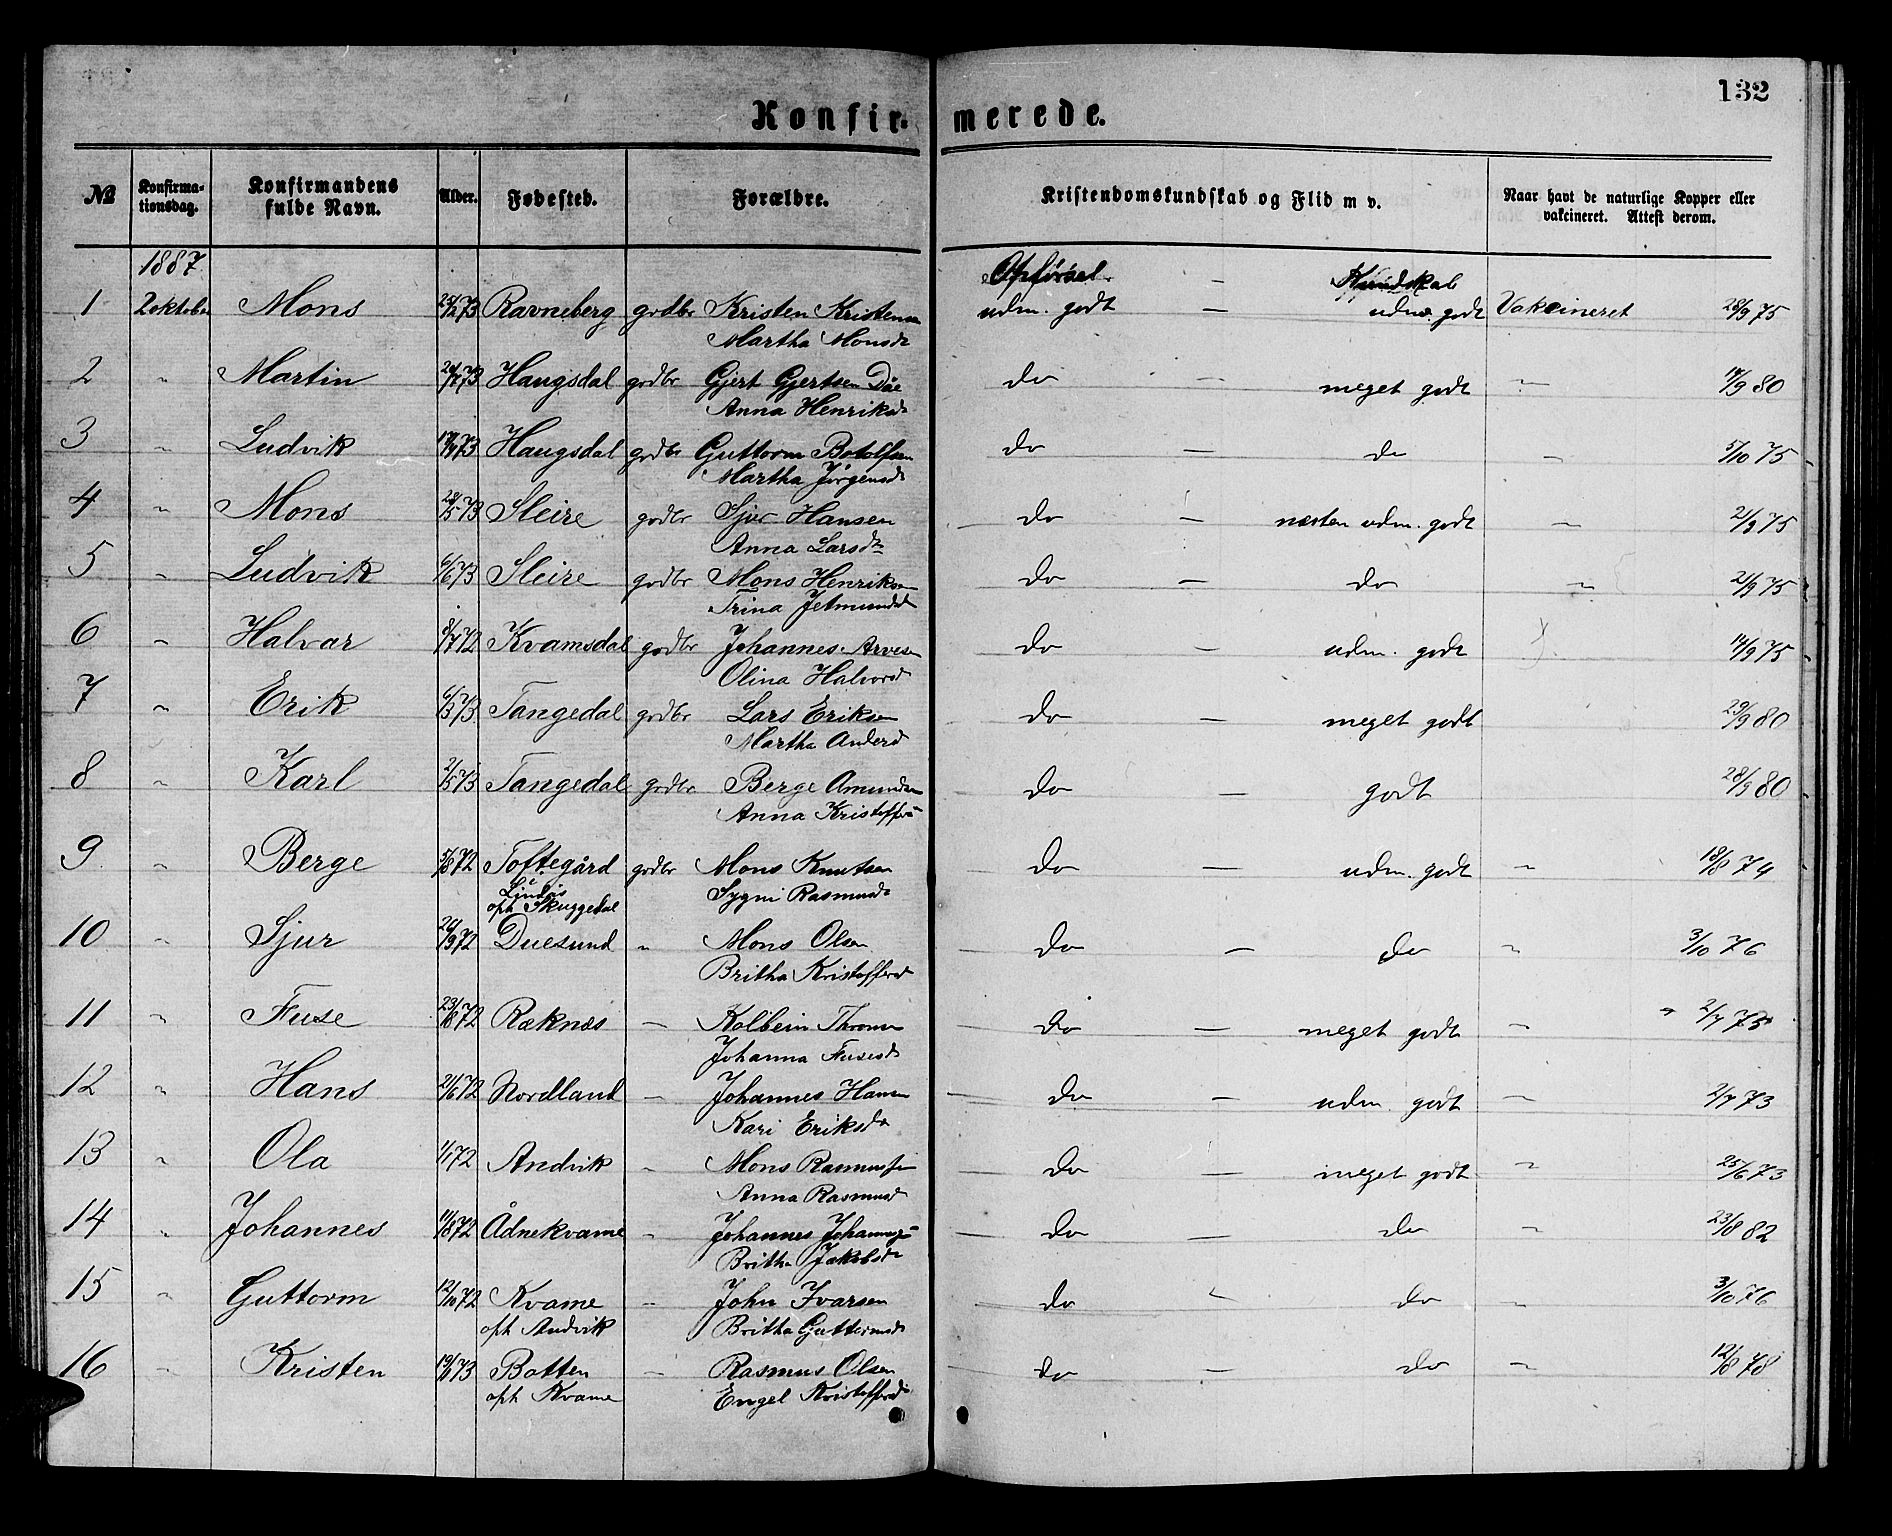 132
Konfirmerede.
No Konfirmationsdag. Konfirmandens fulde Navn. Alder. Fødested. Forældre. Kristendomskundskab og Flid m v. Naar havt de naturlige Kopper eller vakcineret. Attest derom.
1887 Opførsel — Kundskab
1 2 oktober Mons Ravneberg grdbr Kristen Kristensen udm. godt — udm. godt Vakcineret 28/9 75
Martha Monsd
2 " Martin Haugsdal grdbr Gjert Gjertsen Däe do — meget godt " 17/9 80
Anna Henriksd
3 " Ludvik Haugsdal grdbr Guttorm Botolfsen do — do " 5/10 75
Martha Jørgensd
4 " Mons 28/5 73 Sleire grdbr Sjur Hansen do — næsten udm. godt " 21/9 75
Anna Larsd
5 " Ludvik 6/6 73 Sleire grdbr Mons Henriksen do — do " 21/9 75
Trina Jetmundsd
6 " Halvar 8/7 72 Kvamsdal grdbr Johannes Arvesen do — udm. godt 14/9 75
Olina Halvorsd
7 " Erik 6/3 73 Tangedal grdbr Lars Eriksen do — meget godt 29/9 80
Martha Andersd
8 " Karl 2/5 73 Tangedal grdbr Berge Amundsen do — godt 28/9 80
Anna Kristoffersd
9 " Berge 5/8 72 Toftegård grdbr Mons Knutsen do — udm. godt " 18/8 74
i Lindås Sygni Rasmusd
oph Skuggedal
10 " Sjur 20/9 72 Duesund " Mons Olsen do — do " 3/10 76
Britha Kristoffersd
11 " Fuse 23/8 72 Ræknæs — Kolbein Thronsen do — meget godt " 2/7 75
Johanna Fusesd
12 " Hans 2/6 72 Nordland — Johannes Hansen do — udm. godt " 2/7 73
Kari Eriksd
13 " Ola 1/1 72 Andvik " Mons Rasmussen do — meget godt " 25/6 73
Anna Rasmusd
14 " Johannes 11/8 72 Ådnekvame " Johannes Johannes do — do " 23/8 82
Britha Jakobsd
15 " Guttorm 12/10 72 Kvame — John Ivarsen do — do " 3/10 76
oph Andvik Britha Guttormsd
16 " Kristen Botten — Rasmus Olsen do — do " 12/8 78
oph Kvame Engel Kristoffersd